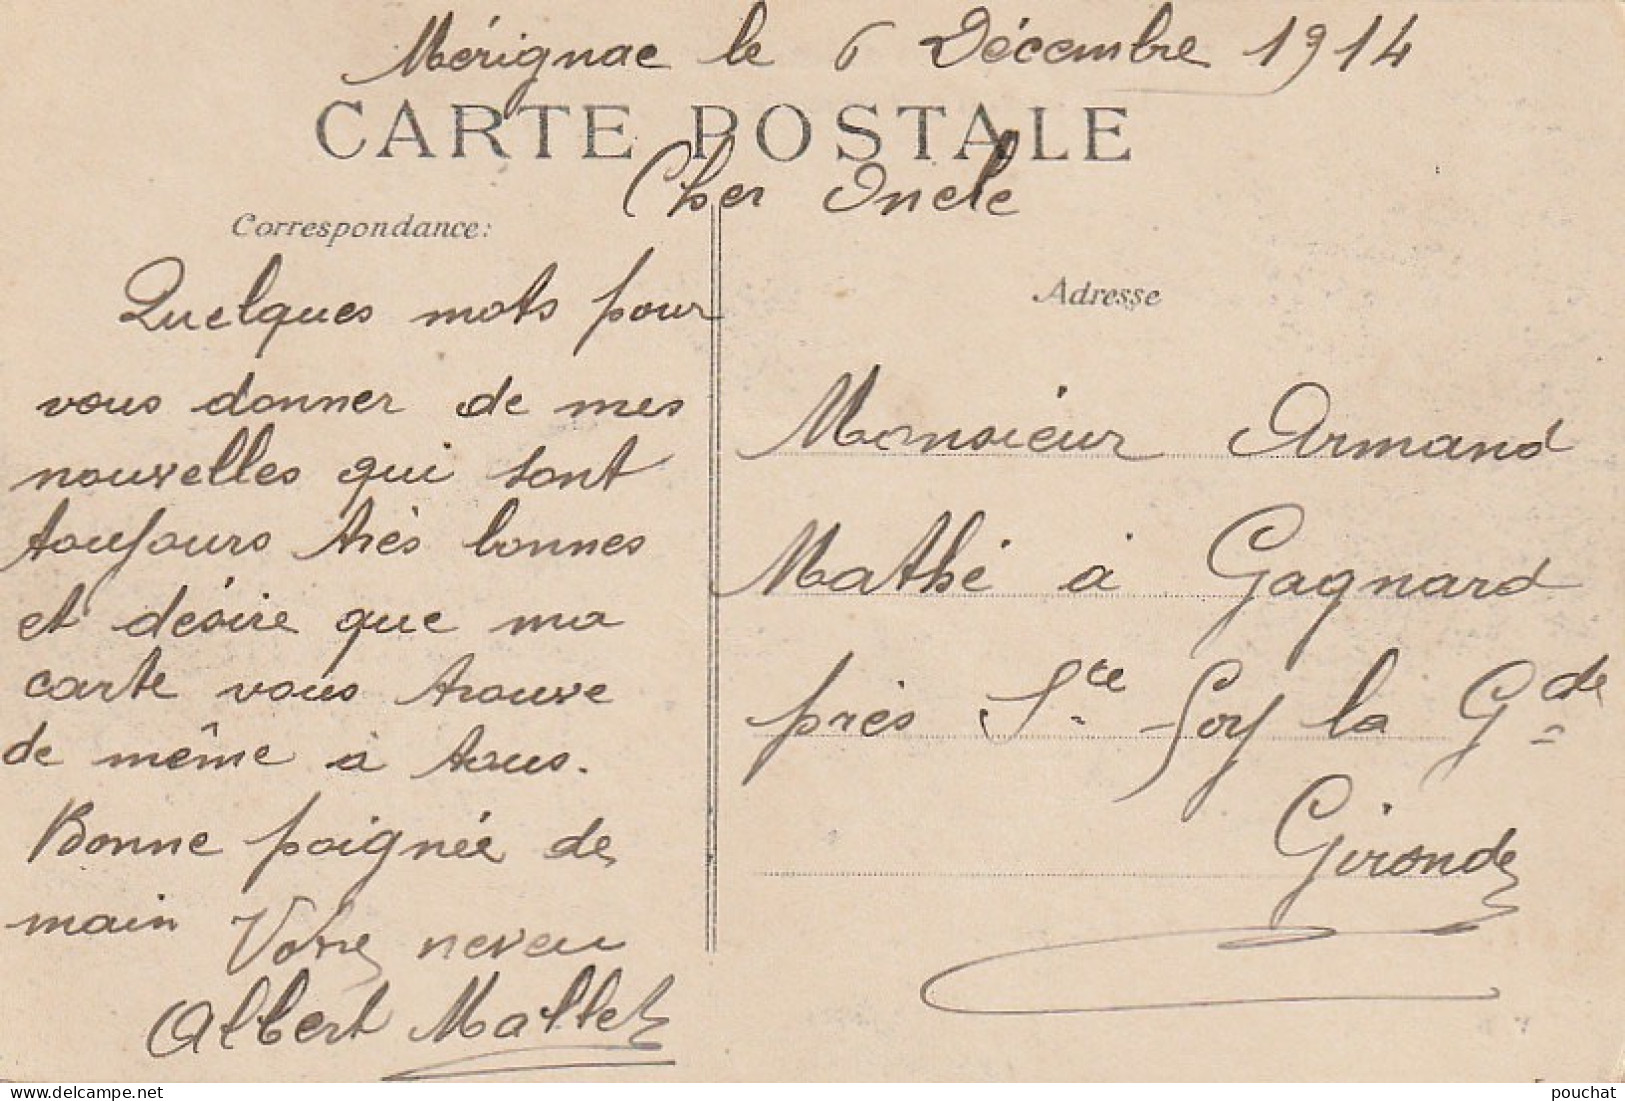 Mérignac le 6 Décembre 1914
CARTE POSTALE
Cher Oncle
Correspondance:
Quelques mots pour
vous donner de mes
nouvelles qui sont
toujours très bonnes
et désire que ma
carte vous trouve
de même à tous.
Bonne poignée de
main
Votre neveu
Albert Mallet
Adresse
Monsieur Armand
Mathé à Gagnard
près Ste Foy la Gde
Gironde
pouchat